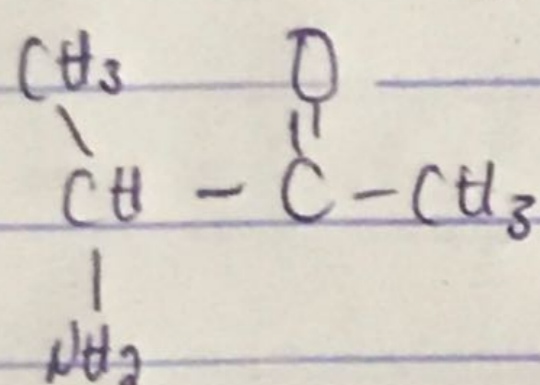 CH3 O
CH - C - CH3
NH2